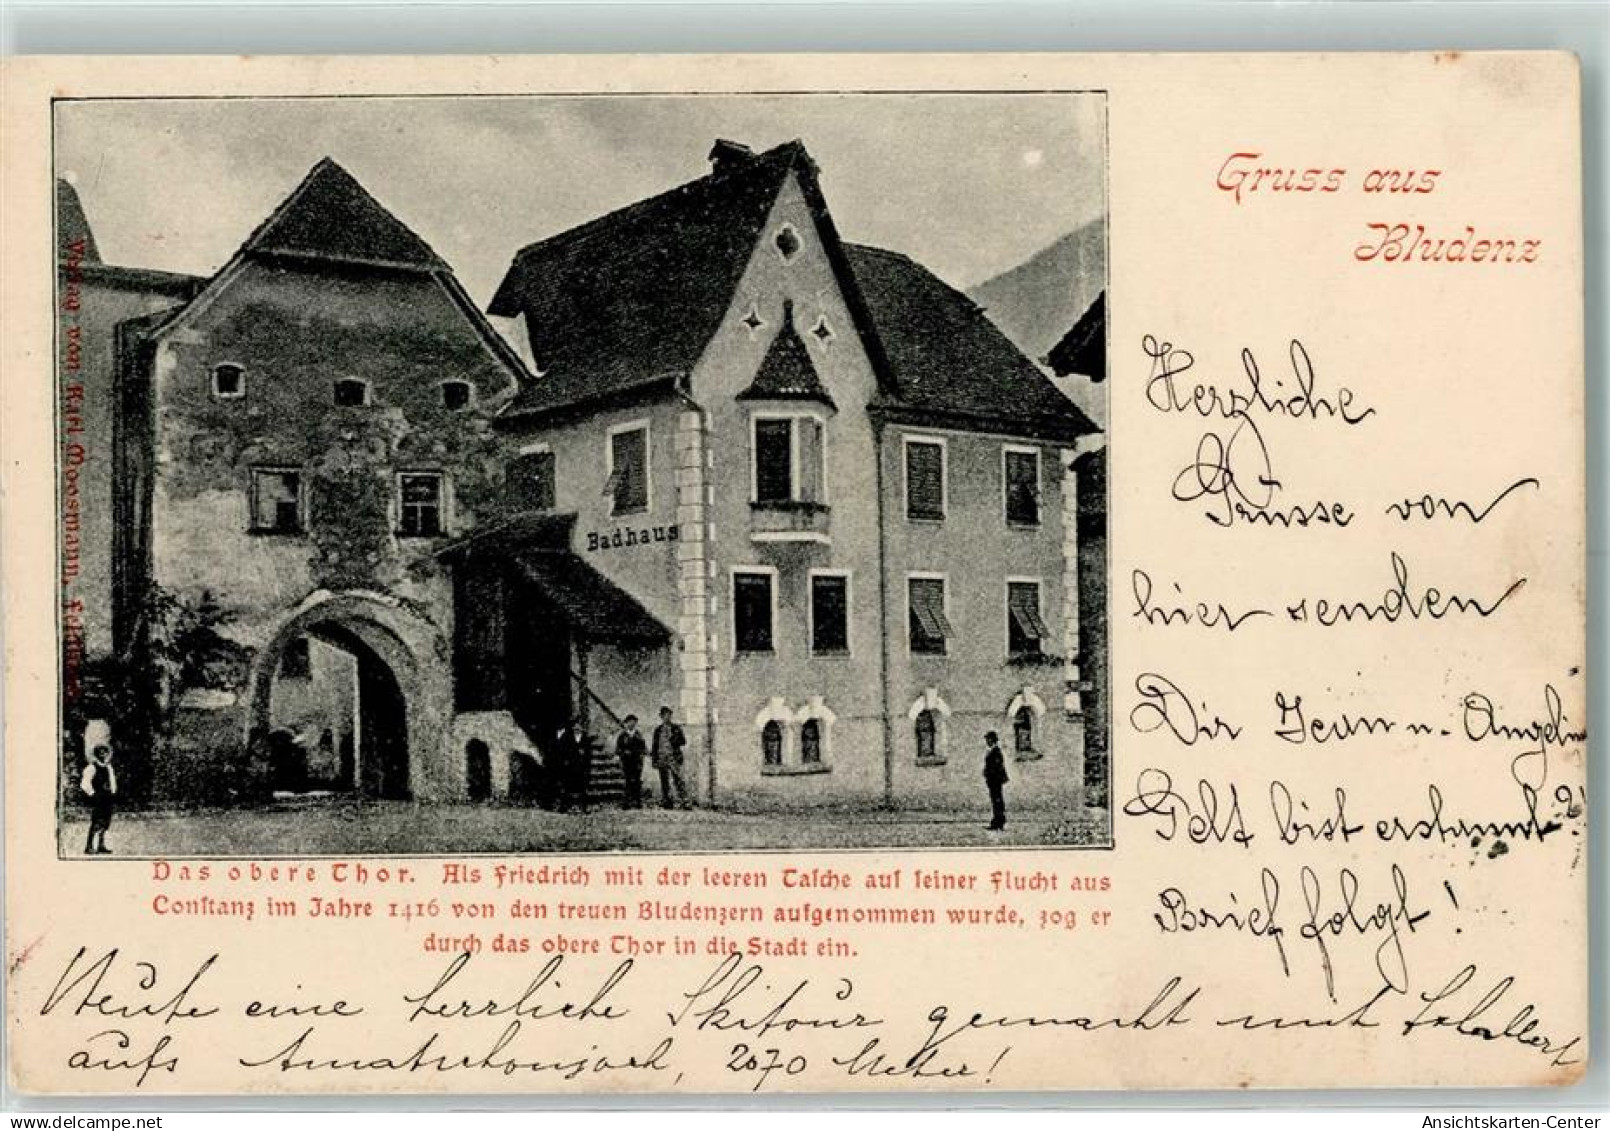 Gruss aus
Bludenz
Verlag von Karl Moosmann,
Badhaus
Das obere Thor. Als Friedrich mit der leeren Tasche auf seiner Flucht aus
Constanz im Jahre 1416 von den treuen Bludenzern aufgenommen wurde, zog er
durch das obere Thor in die Stadt ein.
Herzliche
Grüsse von
hier senden
Dir Jean u. Angelin
Gelt bist erstaunt?!
Brief folgt!
Heute eine herrliche Skitour gemacht mit
aufs 2070 Meter!
Ansichtskarten-Center